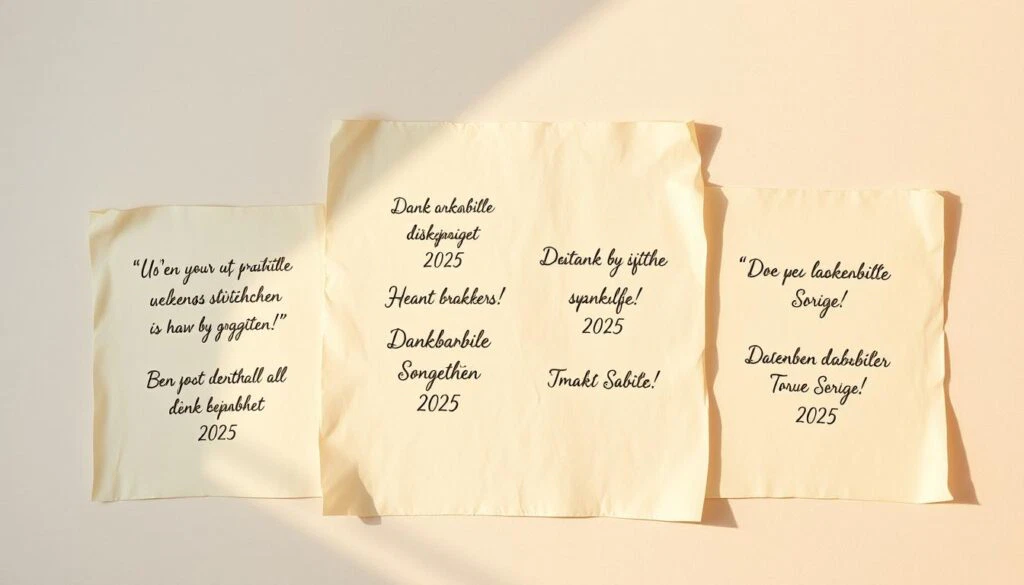 “Uo'en your ut praibitle
uelkenos stiitehchen
is haw by goggiten!”
Ben post derithall all
dënk bepabhet
2025
Dank arkabille
diskepniget
2025
Heant brakkers!
Dankbarbile
Songethen
2025
Deitank by ijtthe
spankulfe!
2025
Tmakt Sabite!
“Doe peu laokenbiltë
Sorige!
Daienben dabubiler
Torue Serige!
2025